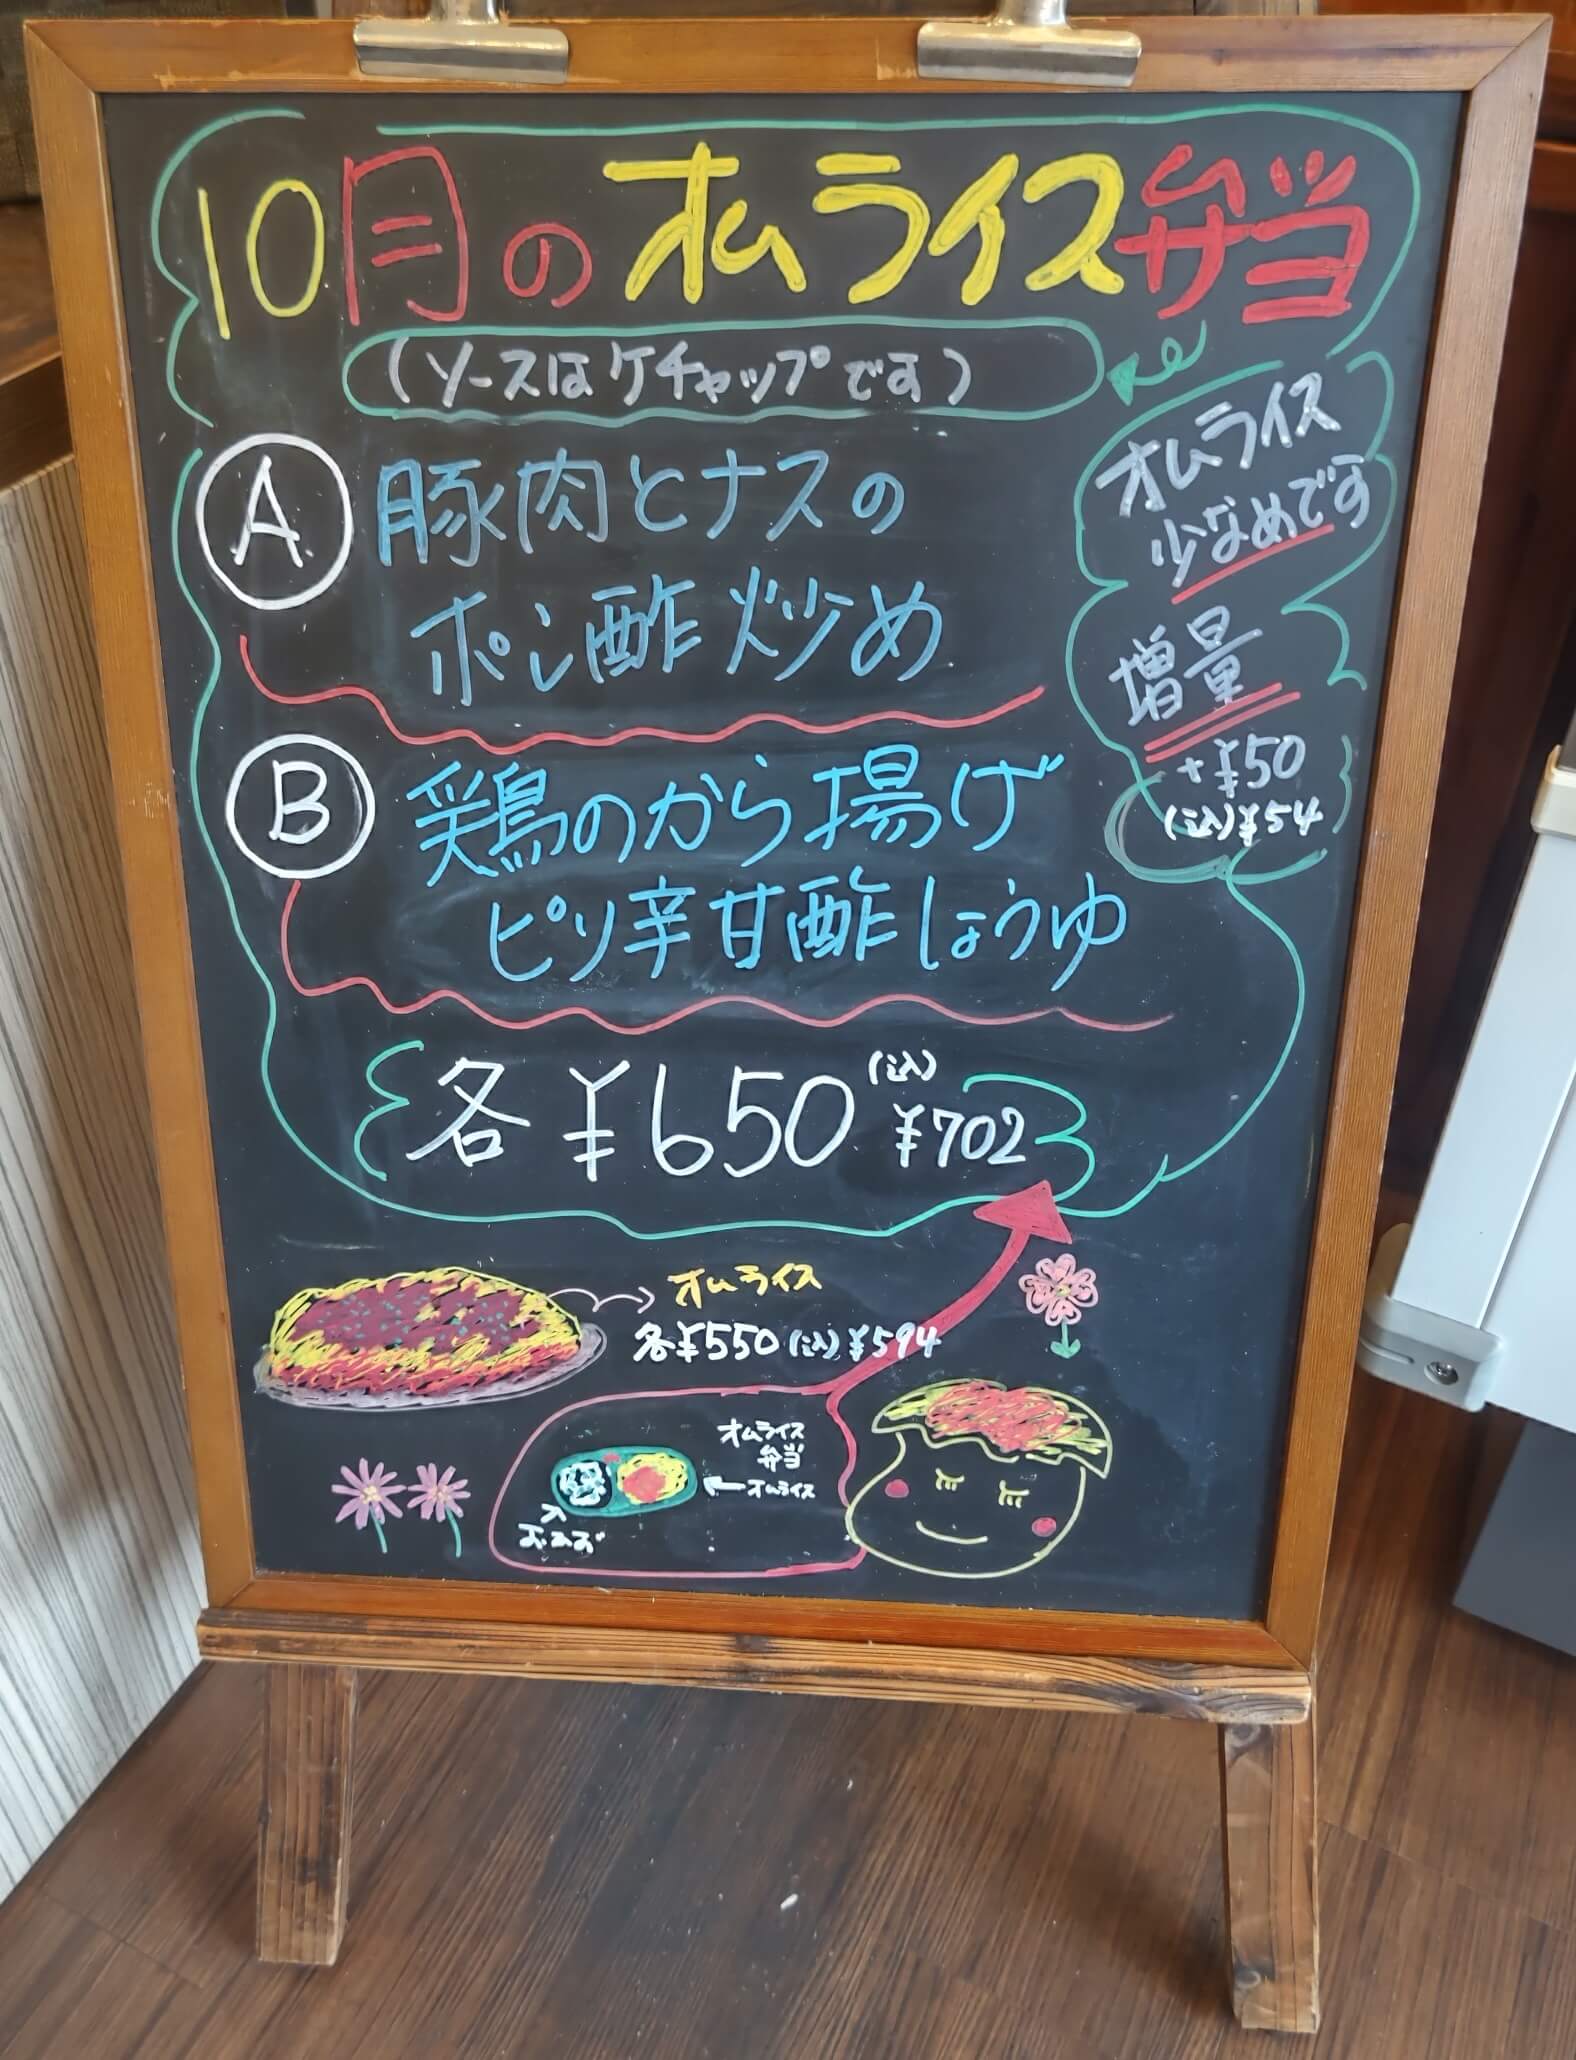 10月のオムライス弁当
(ソースはケチャップです)
オムライス
少なめです
増量
+¥50
(込)¥54
Ⓐ 豚肉とナスの
ポン酢炒め
Ⓑ 鶏のから揚げ
ピリ辛甘酢しょうゆ
各¥650 (込)¥702
オムライス
各¥550(込)¥594
オムライス
弁当
←オムライス
おかず